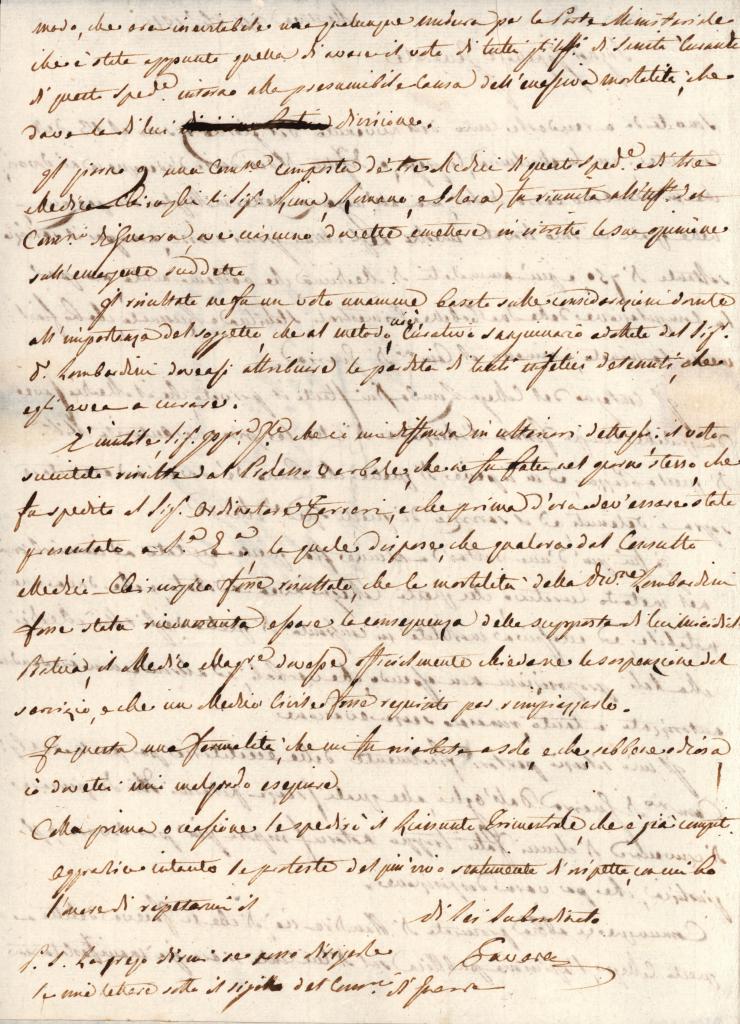 modo, che era inevitabile una qualunque misura per la Parte Ministeriale
che è stata appunto quella di avere il voto di tutti gli Uffi. di Sanità Curanti
di questo Sped.e intorno alla presumibile Causa dell'eccessiva mortalità, che
dava la di lui divisione.
Il giorno 9 una Com.ne composta da tre Medici di questo Sped.e e di tre
Medico-Chirurghi li Sig.i Rima, Romano, e Solera, fu riunita all'Uff. del
Comm. di Guerra, ove ciascuno dovette emettere in iscritto la sua opinione
sull'emergente suddetto
Il risultato ne fu un voto unanime basato sulle considerazioni dovute
all'importanza del soggetto, che al metodo curativo sanguinario adottato dal Sig.
D. Lombardini doveasi attribuire la perdita di tanti infelici detenuti, che
egli avea a curare.
È inutile, Sig. che io mi diffonda in ulteriori dettagli: il voto
succitato risulta dal Processo Verbale, che ne fu fatto nel giorno stesso, che
fu spedito al Sig. Ordinatore Ferreri, e che prima d'ora dev'essere stato
presentato a S.a E.a, la quale dispose, che qualora dal Consulto
Medico-Chirurgico fosse risultato, che la mortalità della Div.ne Lombardini
fosse stata riconosciuta essere la conseguenza della supposta di lui micidial
Pratica, il Medico Magg.e dovesse officialmente chiedere la sospensione del
servizio, e che un Medico Civile fosse requisito per rimpiazzarlo.
Fu questa una formalità, che mi fu riserbata a solo, e che, sebbene odiosa
io dovetti mio malgrado eseguire.
Colla prima occasione le spedirò il Riassunto Trimestrale, che è già compit.
aggradisca intanto le proteste del più vivo sentimento di rispetto con cui ho
l'onore di ripetermi il
di Lei Subordinato
Savara
P. S. La prego dirmi se posso dirigerle
le mie lettere sotto il sigillo del Comm. di Guerra